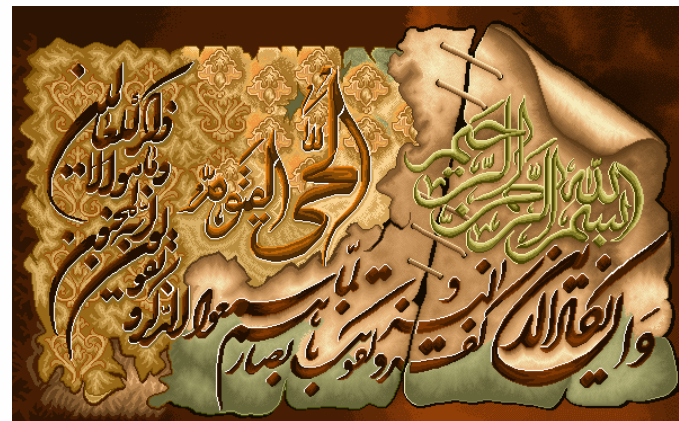 بسم الله الرحمن الرحيم
الحي القيوم
وإن يكاد الذين كفروا ليزلقونك بأبصارهم لما سمعوا الذكر
ويقولون إنه لمجنون
وما هو إلا
ذكر للعالمين